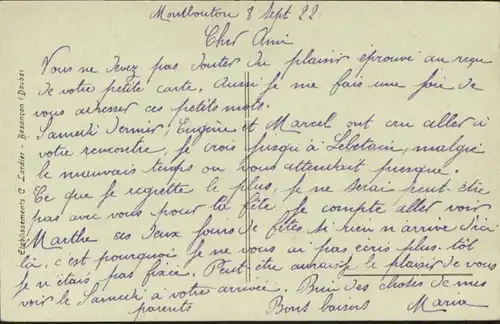 Montbouton 8 Sept 22
Cher Ami
Vous ne devez pas douter du plaisir éprouvé au reçu
de votre petite carte. Aussi je me fais une joie de
vous adresser ces petits mots.
Samedi dernier, Eugène et Marcel ont cru aller à
votre rencontre, je crois jusqu'à Lebetain, malgré
le mauvais temps on vous attendait presque.
Ce que je regrette le plus, je ne serai peut-être
pas avec vous pour la fête je compte aller voir
Marthe ses deux jours de fêtes, si rien n'arrive d'ici
là, c'est pourquoi je ne vous ai pas écris plus tôt
je n'étais pas fixée. Peut-être aurais-je le plaisir de vous
voir le Samedi à votre arrivée. Bien des choses de mes
parents Bons baisers Maria
Etablissements C. Lardier - Besançon (Doubs)